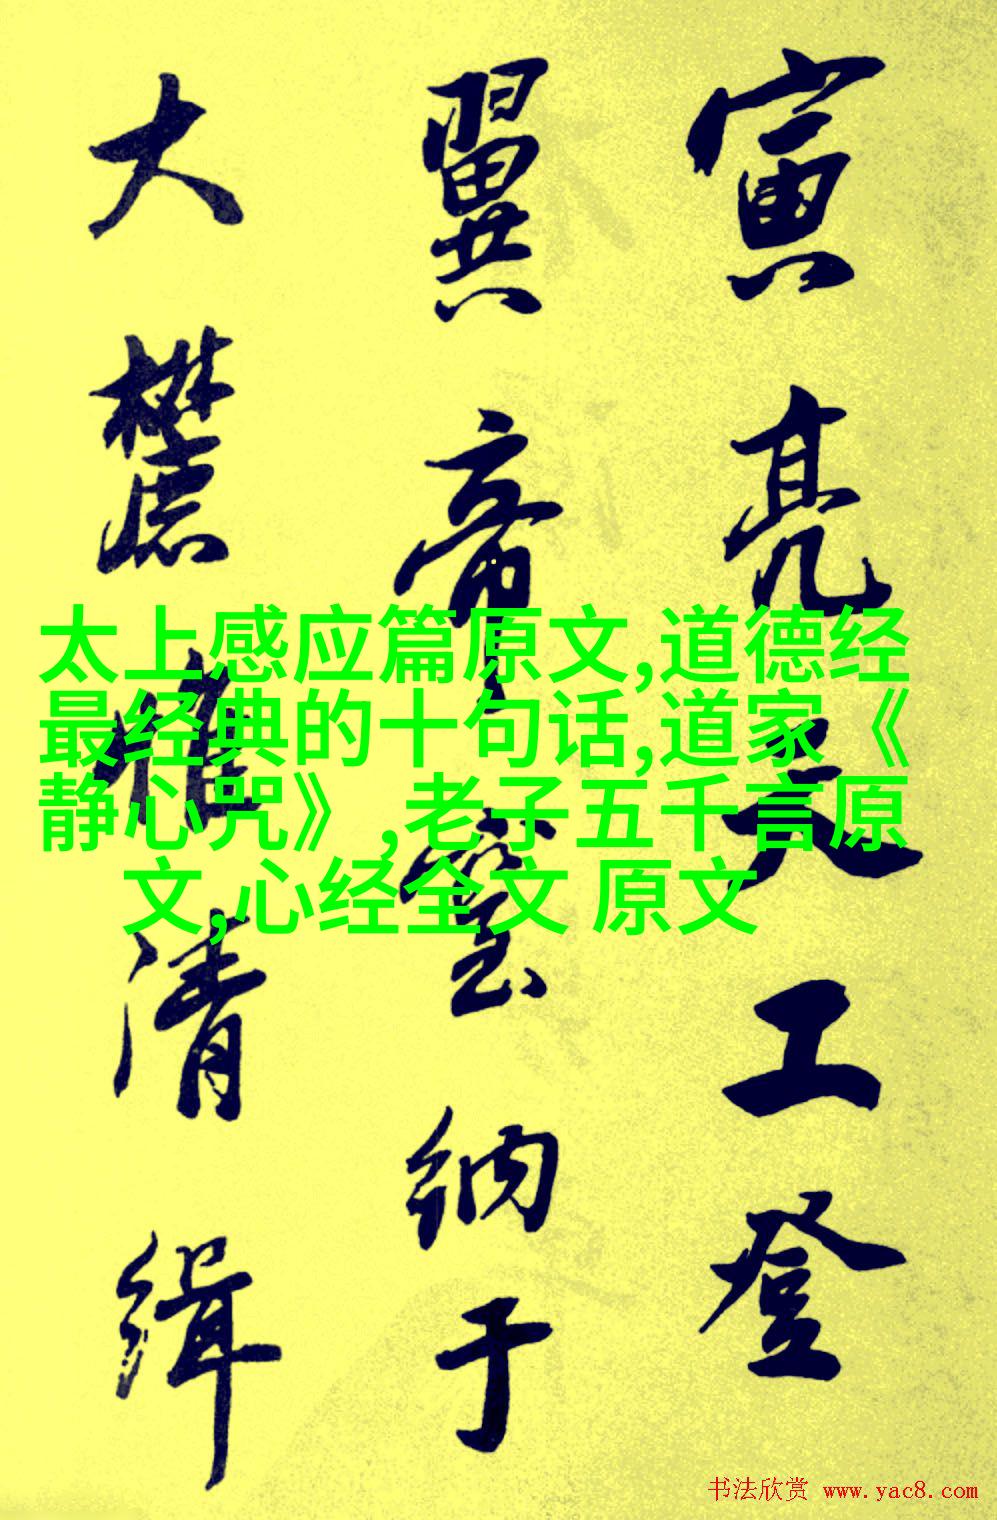 寅亮天工登
翼帝室納于
大麓惟清緝
太上感应篇原文,道德经
最经典的十句话,道家《
静心咒》,老子五千言原
文,心经全文 原文
书法欣赏 www.yac8.com